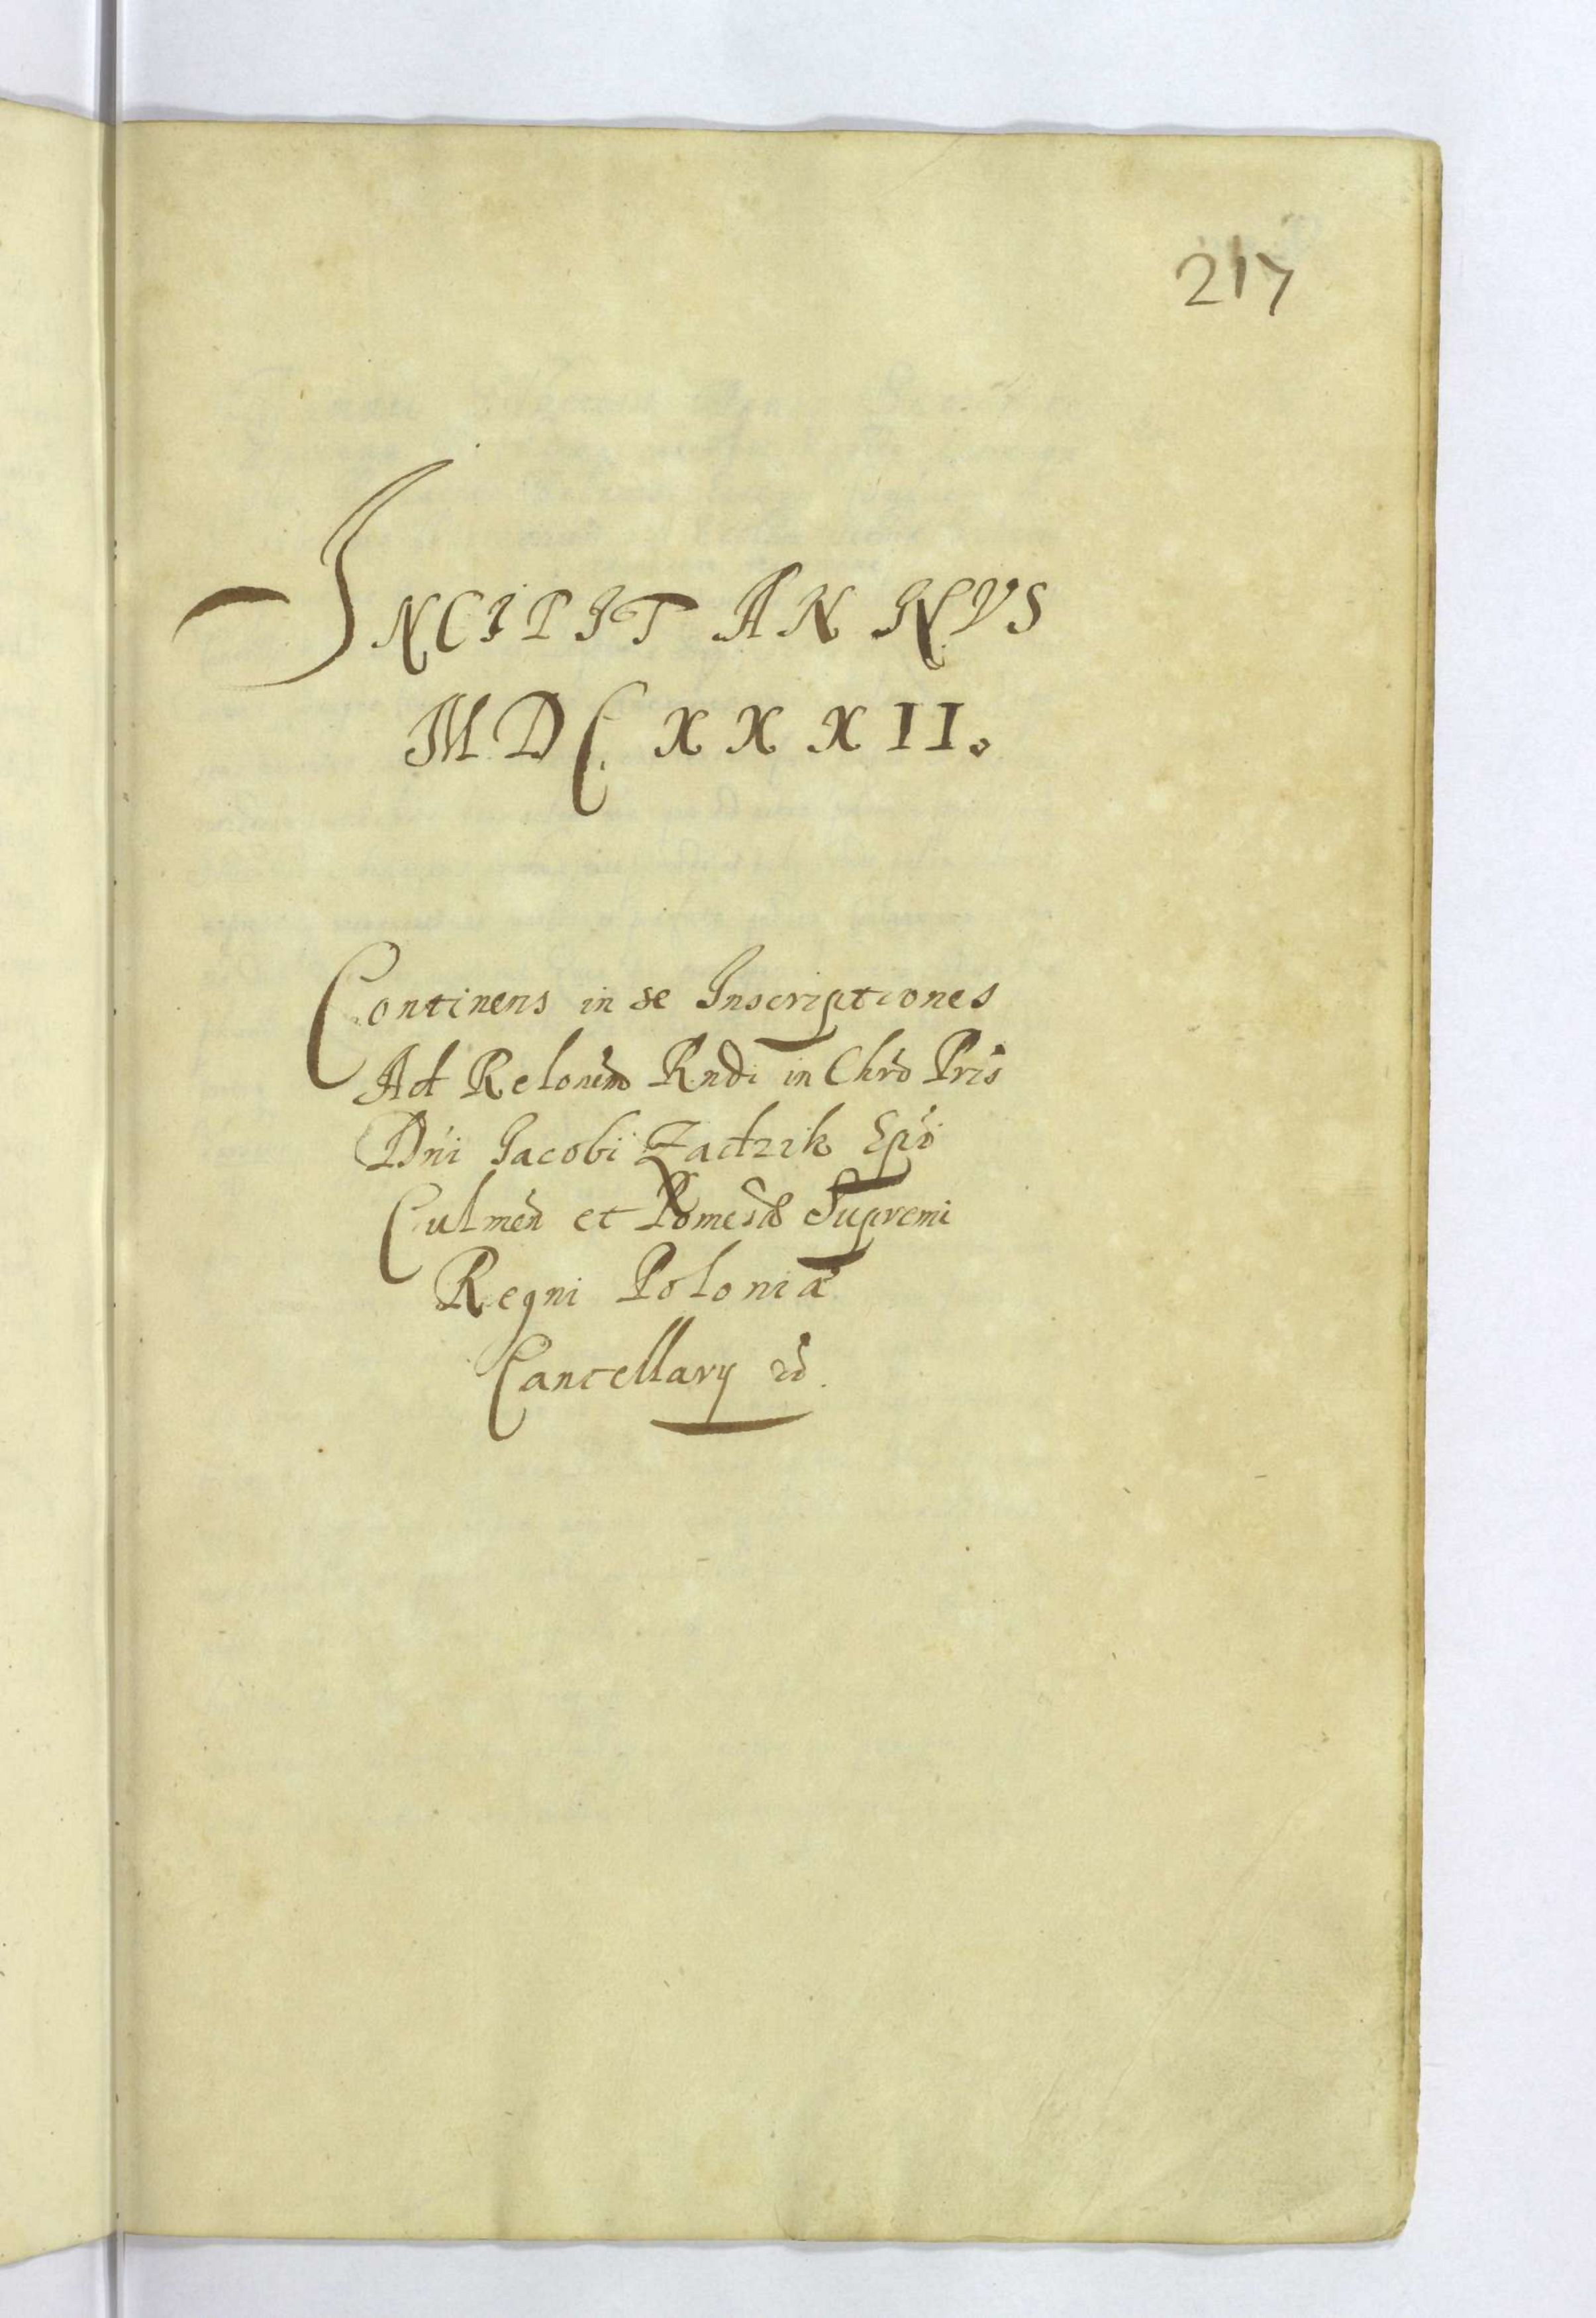 217
INCIPIT ANNVS
MDCXXXII.
Continens in se Inscriptiones
Ad Relonem Rndi in Chro Pris
Dni Jacobi Zadzik Epi
Culmen et Pomesa Supremi
Regni Poloniæ
Cancellary